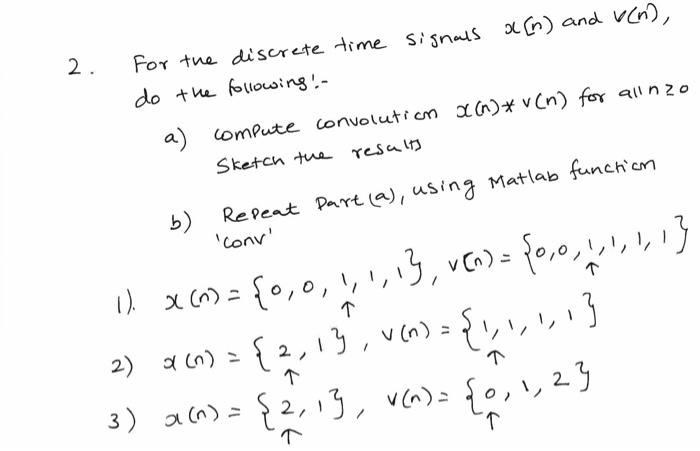 2. For the discrete time signals x(n) and v(n),
do the following:-
a) compute convolution x(n)*v(n) for all n≥0
Sketch the results
b) Repeat Part(a), using Matlab function
'conv'
1). x(n) = {0,0,1,1,1}, v(n) = {0,0,1,1,1,1}
↑ ↑
2) x(n) = {2,1}, v(n) = {1,1,1,1}
↑ ↑
3) x(n) = {2,1}, v(n) = {0,1,2}
↑ ↑